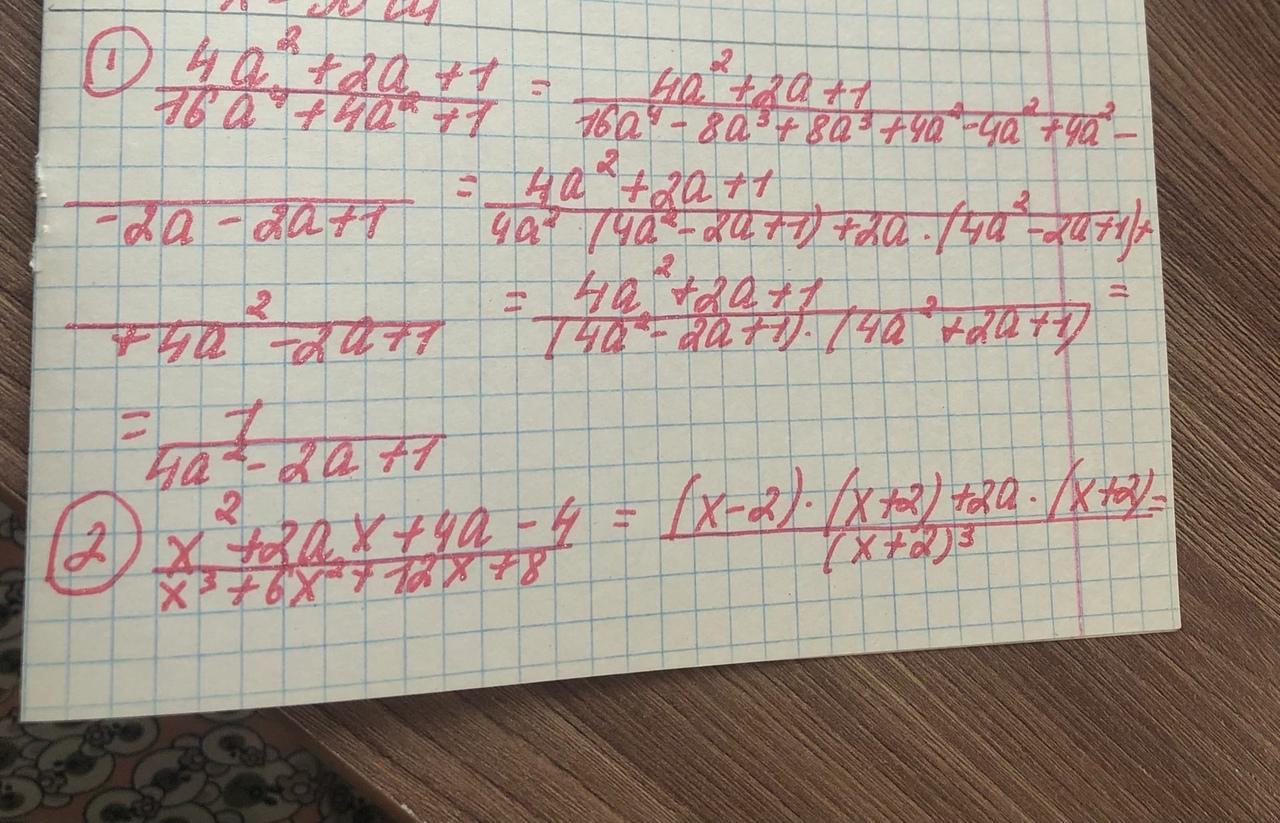 ① (4a² + 2a + 1)/(16a⁴ + 4a² + 1) = (4a² + 2a + 1)/(16a⁴ - 8a³ + 8a³ + 4a² - 4a² + 4a² -
/(-2a - 2a + 1) = (4a² + 2a + 1)/(4a² (4a² - 2a + 1) + 2a · (4a² - 2a + 1) +
/(+ 4a² - 2a + 1) = (4a² + 2a + 1)/((4a² - 2a + 1) · (4a² + 2a + 1)) =
= 1/(4a² - 2a + 1)
② (x² + 2ax + 4a - 4)/(x³ + 6x² + 12x + 8) = ((x - 2) · (x + 2) + 2a · (x + 2))/(x + 2)³ =